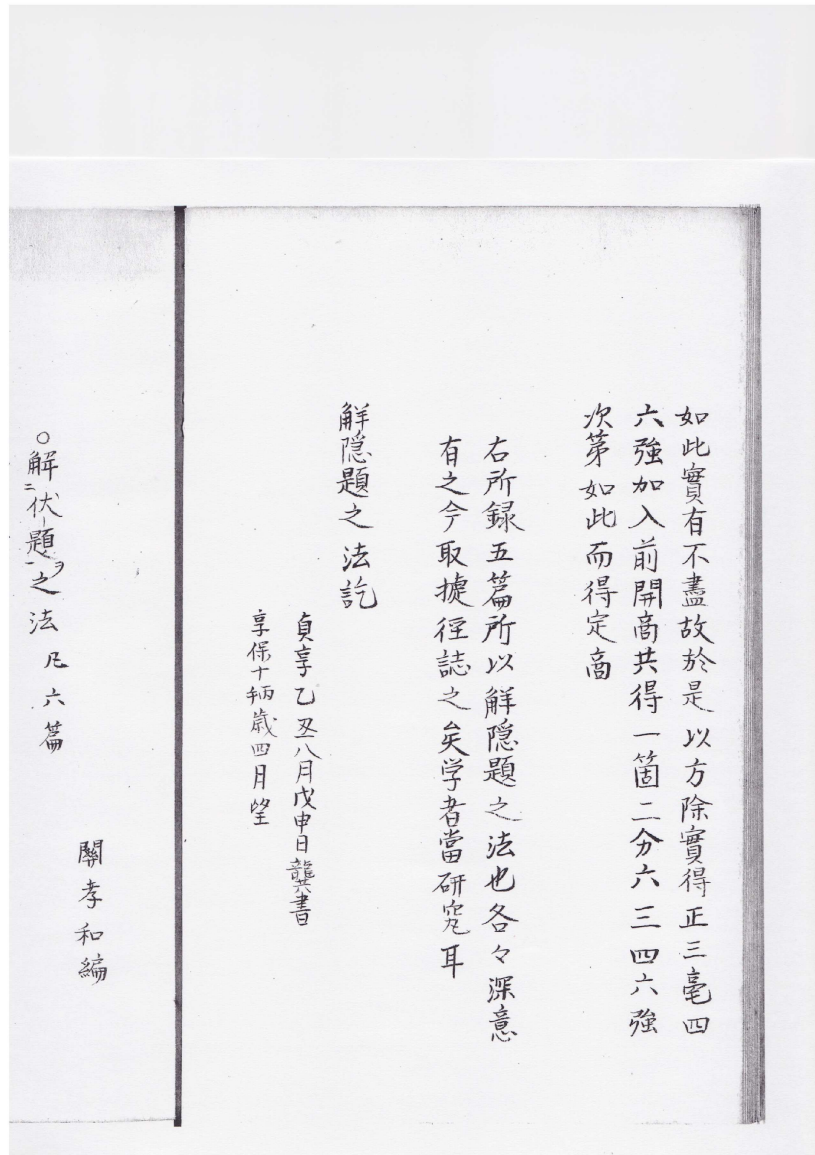 如此實有不盡故於是以方除實得正三毫四
六強加入前開商共得一箇二分六三四六強
次第如此而得定商
右所録五篇所以解隠題之法也各々深意
有之今取捷徑誌之矣学者當研究耳
解隠題之法訖
貞享乙丑八月戊申日襲書
享保十歳四月望
○解伏題之法 凡六篇
關孝和編